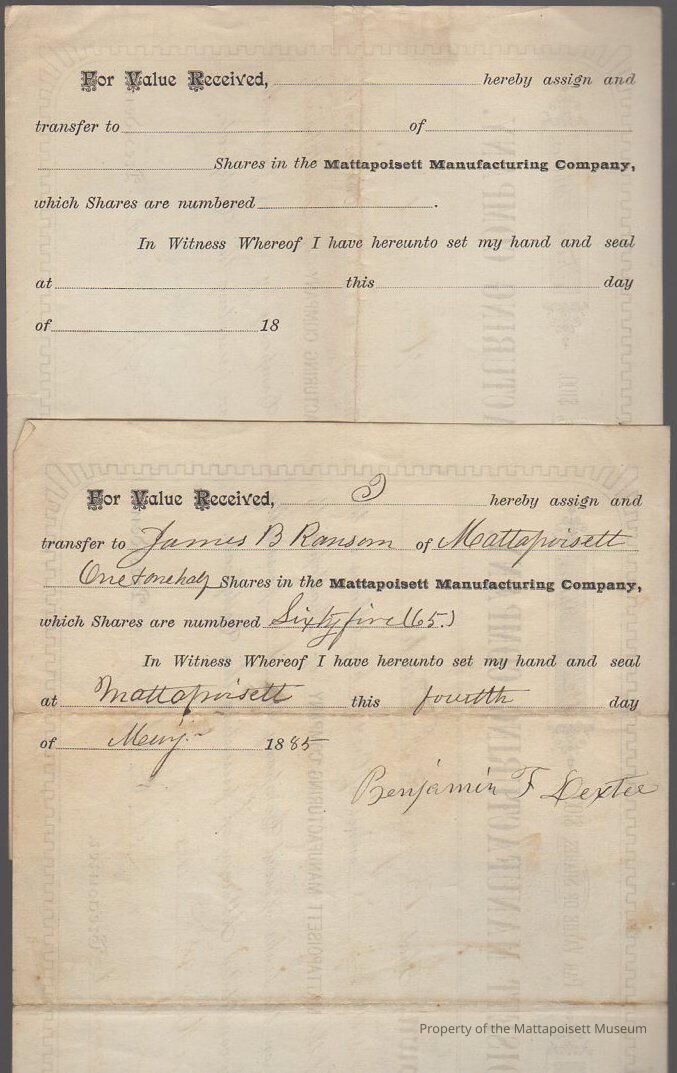 For Value Received, hereby assign and
transfer to of
Shares in the Mattapoisett Manufacturing Company,
which Shares are numbered .
In Witness Whereof I have hereunto set my hand and seal
at this day
of 18
For Value Received, I hereby assign and
transfer to James B Ransom of Mattapoisett
One & one half Shares in the Mattapoisett Manufacturing Company,
which Shares are numbered Sixty five (65.)
In Witness Whereof I have hereunto set my hand and seal
at Mattapoisett this fourth day
of May 1885
Benjamin F Dexter
Property of the Mattapoisett Museum